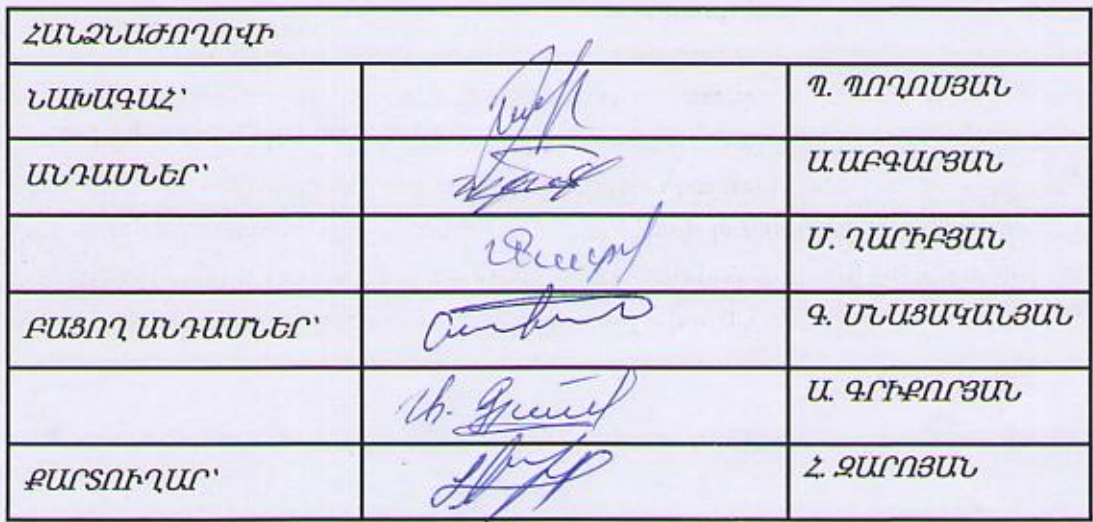 ՀԱՆՁՆԱԺՈՂՈՎԻ
ՆԱԽԱԳԱՀ՝ Պ. ՊՈՂՈՍՅԱՆ
ԱՆԴԱՄՆԵՐ՝ Ա.ԱԲԳԱՐՅԱՆ
Մ. ՂԱՐԻԲՅԱՆ
ԲԱՑՈՂ ԱՆԴԱՄՆԵՐ՝ Գ. ՄՆԱՑԱԿԱՆՅԱՆ
Ա. ԳՐԻՔՈՐՅԱՆ
ՔԱՐՏՈՒՂԱՐ՝ Հ. ԶԱՐՈՅԱՆ